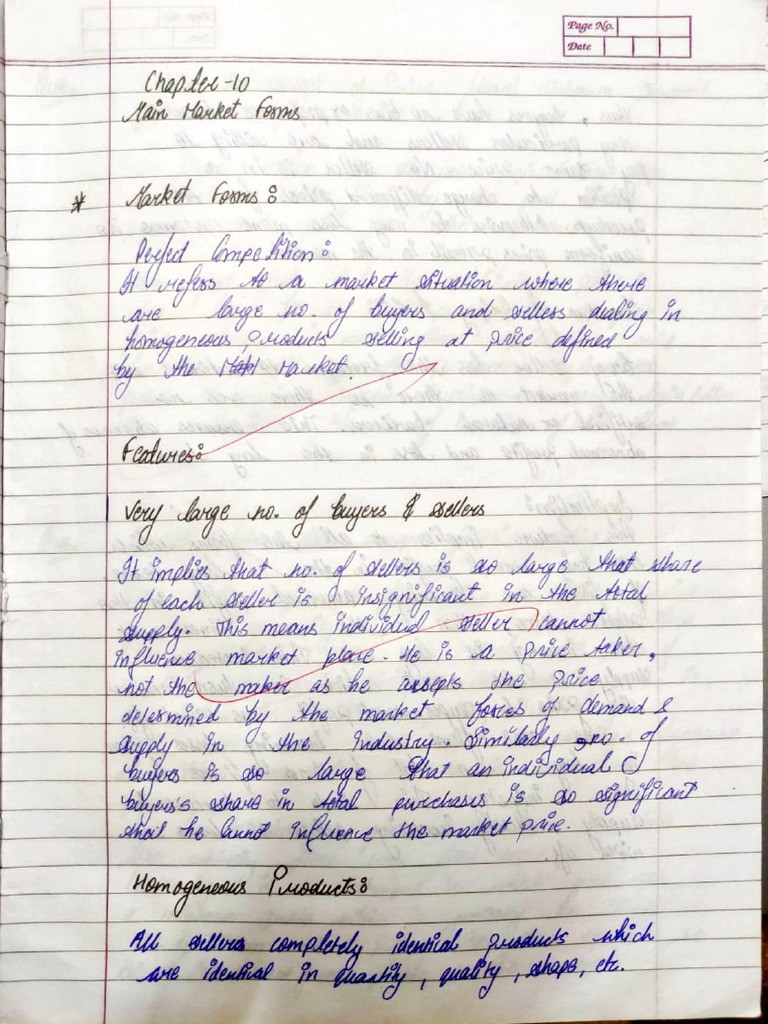 Page No.
Date
Chapter-10
Main Market Forms
* Market Forms:
Perfect Competition:
It refers to a market situation where there
are large no. of buyers and sellers dialing in
homogeneous Products selling at price defined
by the Market.
Features:
Very large no. of buyers & sellers
It implies that no. of sellers is so large that share
of each seller is insignificant in the total
supply. This means individual seller cannot
influence market place. He is a price taker,
not the maker as he accepts the price
determined by the market forces of demand &
supply in the industry. Similarly, no. of
buyers is so large that an individual
buyers's share in total purchases is so significant
that he cannot influence the market price.
Homogeneous Products:
All sellers completely identical products which
are identical in quantity, quality, shape, etc.